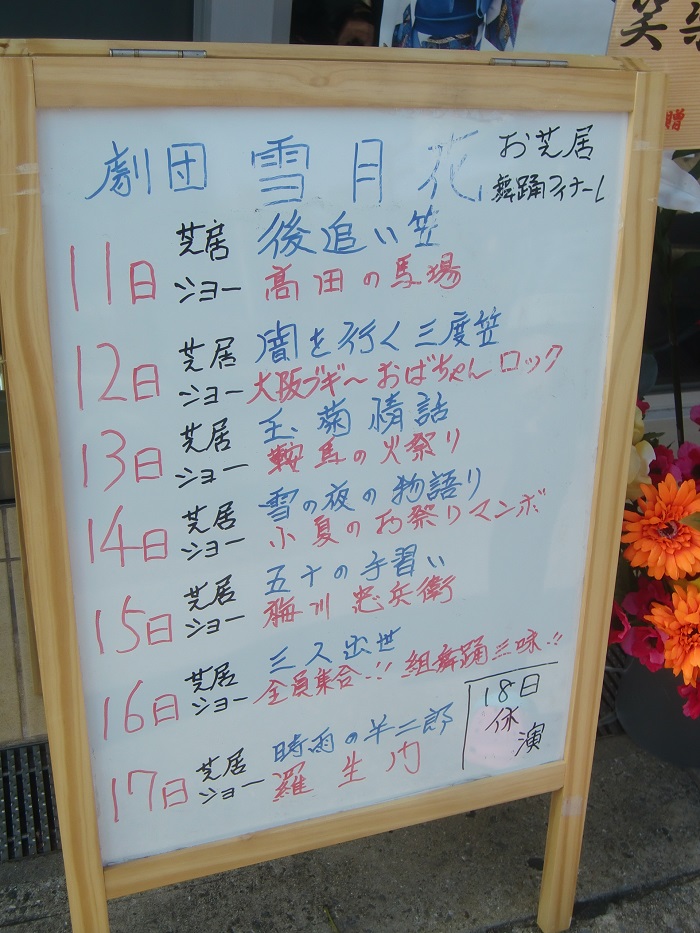 劇団 雪月花
お芝居
舞踊フィナーレ
11日 芝居 後追い笠
ショー 高田の馬場
12日 芝居 闇を行く三度笠
ショー 大阪ブギーおばちゃんロック
13日 芝居 玉菊情話
ショー 鞍馬の火祭り
14日 芝居 雪の夜の物語り
ショー 小夏のお祭りマンボ
15日 芝居 五十の手習い
ショー 梅川忠兵衛
16日 芝居 三ス出世
ショー 全員集合!! 組舞踊三昧!!
17日 芝居 時雨の半二郎
ショー 羅生門
18日
休演
笑
贈